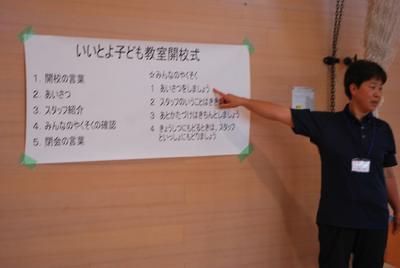 いいとよ子ども教室開校式
1. 開校の言葉
2. あいさつ
3. スタッフ紹介
4. みんなのやくそくの確認
5. 閉会の言葉
☆みんなのやくそく
1 あいさつをしましょう
2 スタッフのいうことはきき
3 あとかたづけはきちんとしましょう
4 きょうしつにもどるときは、スタッフ
といっしょにもどりましょう